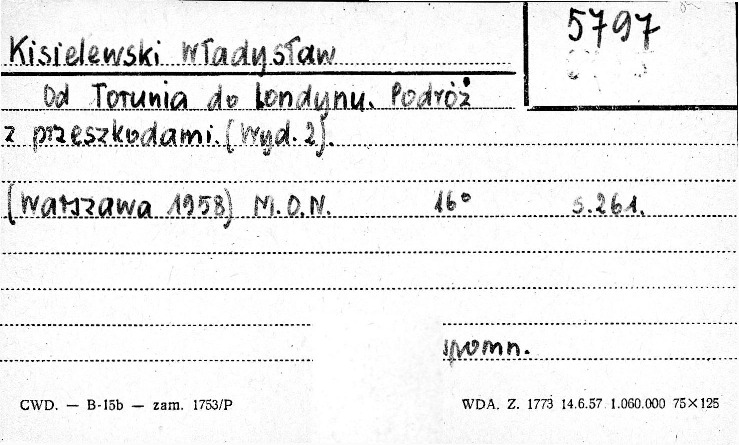 5797
Kisielewski Władysław
Od Torunia do Londynu. Podróż
z przeszkodami. (Wyd. 2).
(Warszawa 1958) M.O.N. 16° s. 261.
wpomn.
CWD. — B-15b — zam. 1753/P
WDA. Z. 1773 14.6.57 1.060.000 75×125